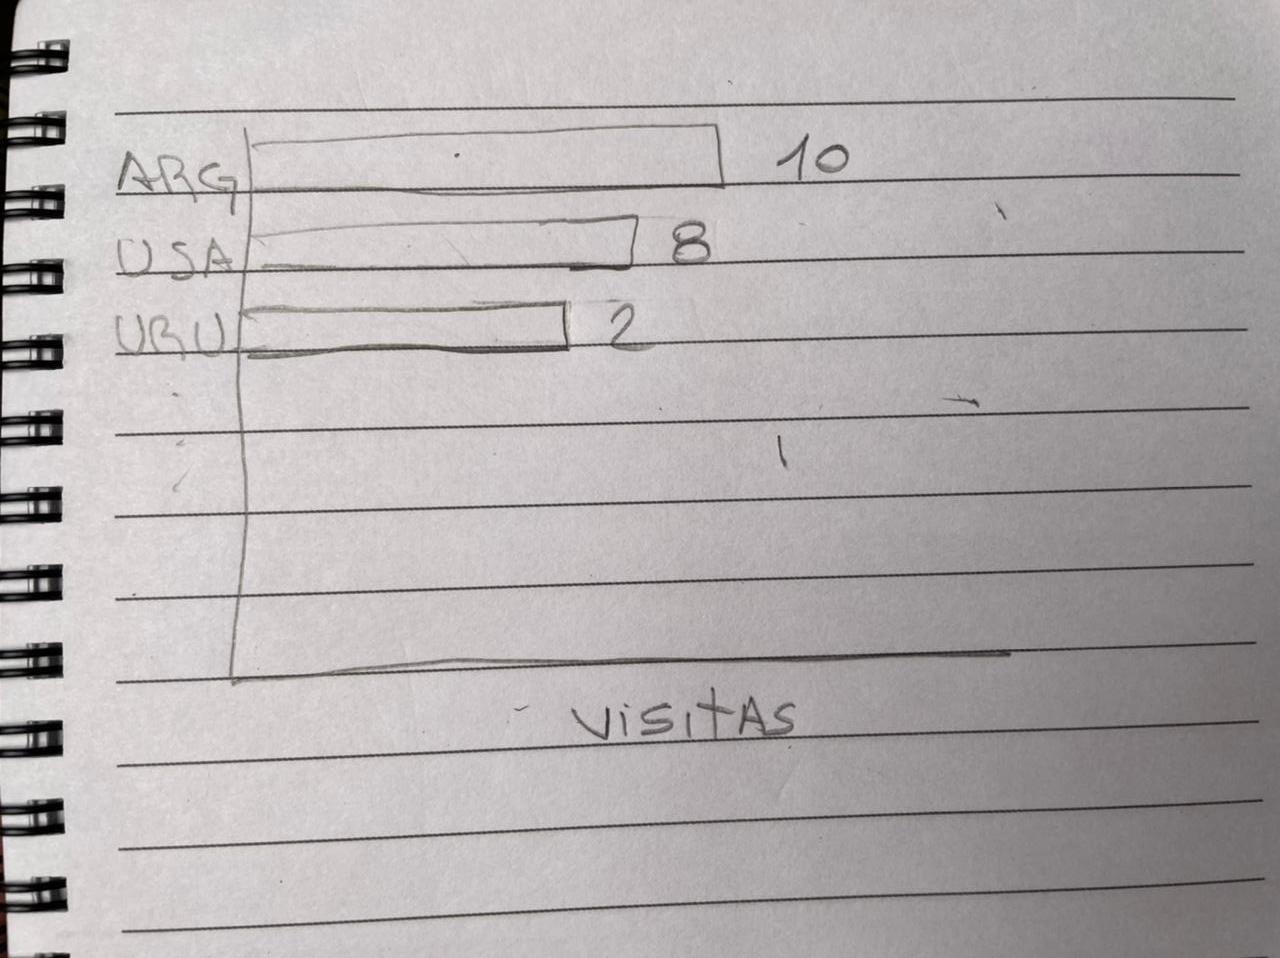 ARG 10
USA 8
URU 2
VISITAS